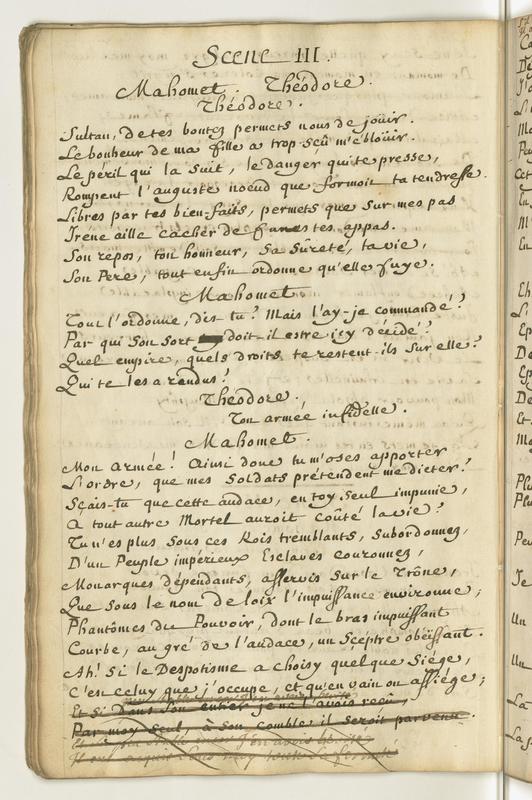 Scene III.
Mahomet. Théodore.
Théodore.
Sultan, de tes bontez permets nous de jouïr.
Le bonheur de ma fille a trop sçû m'eblouïr.
Le péril qui la suit, le danger qui te presse,
Rompent l'auguste noeud que formoit ta tendresse.
Libres par tes bien-faits, permets que sur mes pas
Irène aille cacher de funestes appas.
Son repos, ton honneur, sa sûreté, ta vie,
Son Pere, tout enfin ordonne qu'elle fuye.
Mahomet
Tout l'ordonne, dis-tu? Mais l'ay-je commandé?
Par qui son sort doit-il estre icy décidé?
Quel empire, quels droits te restent-ils sur elle?
Qui te les a rendus?
Théodore.
Ton armée infidelle.
Mahomet.
Mon armée! Ainsi donc tu m'oses apporter
L'ordre, que mes Soldats prétendent me dicter?
Sçais-tu que cette audace, en toy seul impunie,
A tout autre Mortel auroit coûté la vie?
Tu n'es plus sous ces Rois tremblants, subordonnez,
D'un Peuple impérieux Esclaves couronnez,
Monarques dépendants, asservis sur le Trône,
Que sous le nom de loix l'impuissance environne;
Phantômes du Pouvoir, dont le bras impuissant
Courbe, au gré de l'audace, un Sçeptre obéissant.
Ah! Si le Despotisme a choisy quelque Siége,
C'en celuy que j'occupe, et qu'en vain on assiége;
Et si dans son entier je ne l'avois reçû,
Par moy seul, à son comble il seroit parvenu.